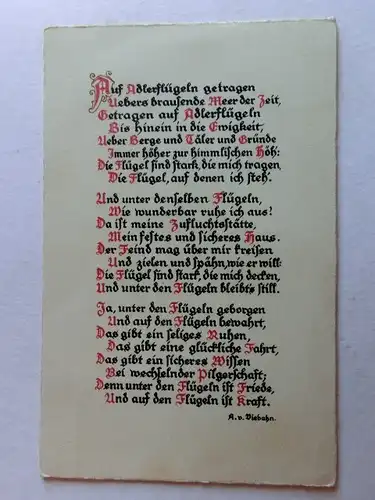 Auf Adlerflügeln getragen
Uebers brausende Meer der Zeit,
Getragen auf Adlerflügeln
Bis hinein in die Ewigkeit;
Ueber Berge und Täler und Gründe
Immer höher zur himmlischen Höh:
Die Flügel sind stark, die mich tragen,
Die Flügel, auf denen ich steh'.
Und unter denselben Flügeln,
Wie wunderbar ruhe ich aus!
Da ist meine Zufluchtsstätte,
Mein festes und sicheres Haus.
Der Feind mag über mir kreisen
Und zielen und spähn, wie er will:
Die Flügel sind stark, die mich decken,
Und unter den Flügeln bleibts still.
Ja, unter den Flügeln geborgen
Und auf den Flügeln bewahrt,
Das gibt ein seliges Ruhen,
Das gibt eine glückliche Fahrt,
Das gibt ein sicheres Wissen
Bei wechselnder Pilgerschaft;
Denn unter den Flügeln ist Friede,
Und auf den Flügeln ist Kraft.
A. v. Viebahn.